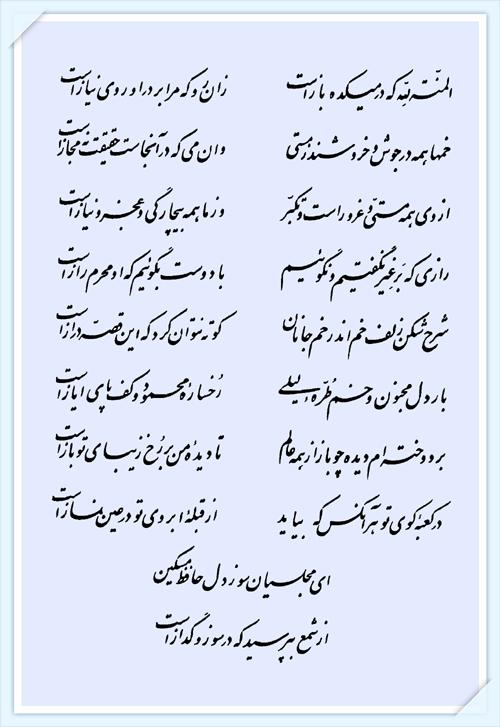 المنّة لله که در میکده باز است زان رو که مرا بر در او روی نیاز است
خمها همه در جوش و خروشند ز مستی وان می که در آنجاست حقیقت نه مجاز است
از وی همه مستیّ و غرور است و تکبّر وز ما همه بیچارگی و عجز و نیاز است
رازی که بر غیر نگفتیم و نگوئیم با دوست بگوئیم که او محرم راز است
شرح شکن زلف خم اندر خم جانان کوته نتوان کرد که این قصّه دراز است
بار دل مجنون و خم طرّه لیلی رخساره محمود و کف پای ایاز است
بردوخته‌ام دیده چو باز از همه عالم تا دیده من بر رخ زیبای تو باز است
در کعبه کوی تو هر آنکس که بیاید از قبله ابروی تو در عین نماز است
ای مجلسیان سوز دل حافظ مسکین
از شمع بپرسید که در سوز و گداز است